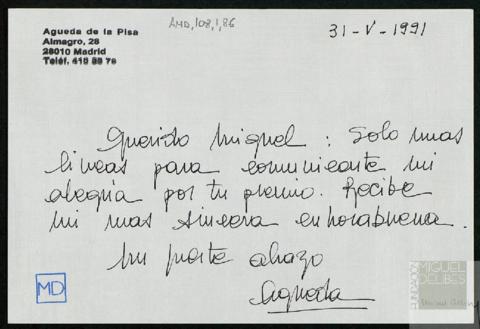 Agueda de la Pisa
Almagro, 28
28010 Madrid
Teléf. 410 88 76
AMD,108,1,86
31-V-1991
Querido Miguel: Solo unas
lineas para comunicarte mi
alegría por tu premio. Recibe
mi mas sincera enhorabuena.
Un fuerte abrazo
Agueda
MD
FUNDACIÓN
MIGUEL
DELIBES